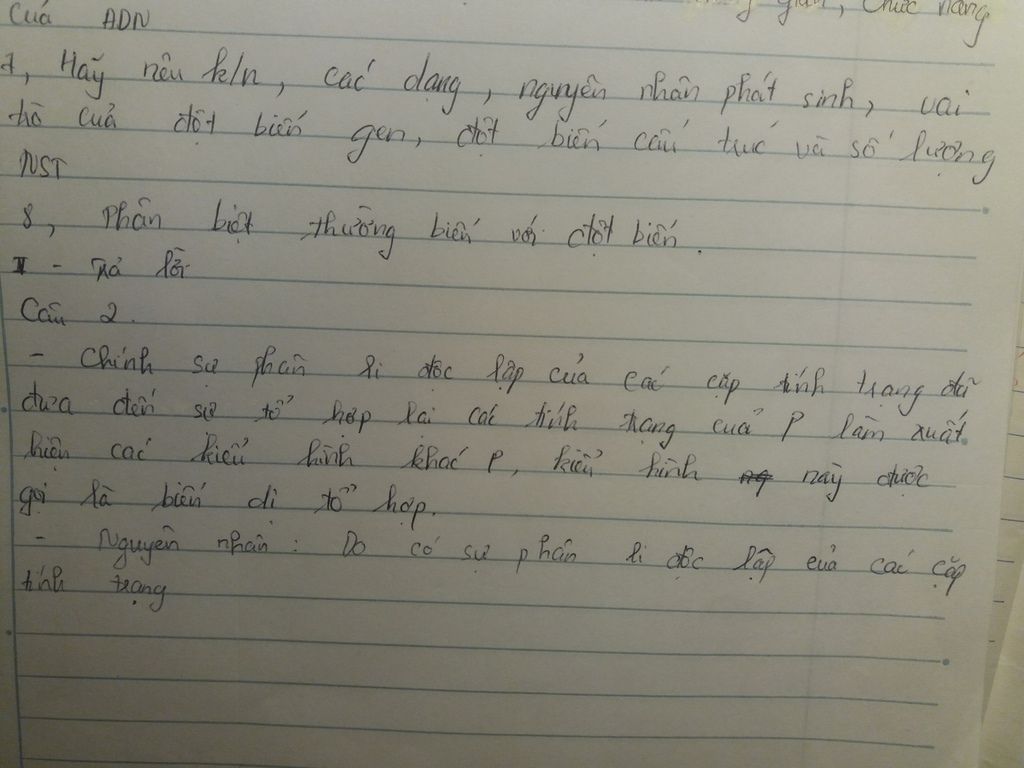 gian, chức năng
của ADN
7, Hãy nêu k/n, các dạng, nguyên nhân phát sinh, vai
trò của đột biến gen, đột biến cấu trúc và số lượng
NST
8, Phân biệt thường biến với đột biến.
II - Trả lời
Câu 2.
- Chính sự phân li độc lập của các cặp tính trạng đã
đưa đến sự tổ hợp lại các tính trạng của P làm xuất
hiện các kiểu hình khác P, kiểu hình này được
gọi là biến dị tổ hợp.
- Nguyên nhân: Do có sự phân li độc lập của các cặp
tính trạng